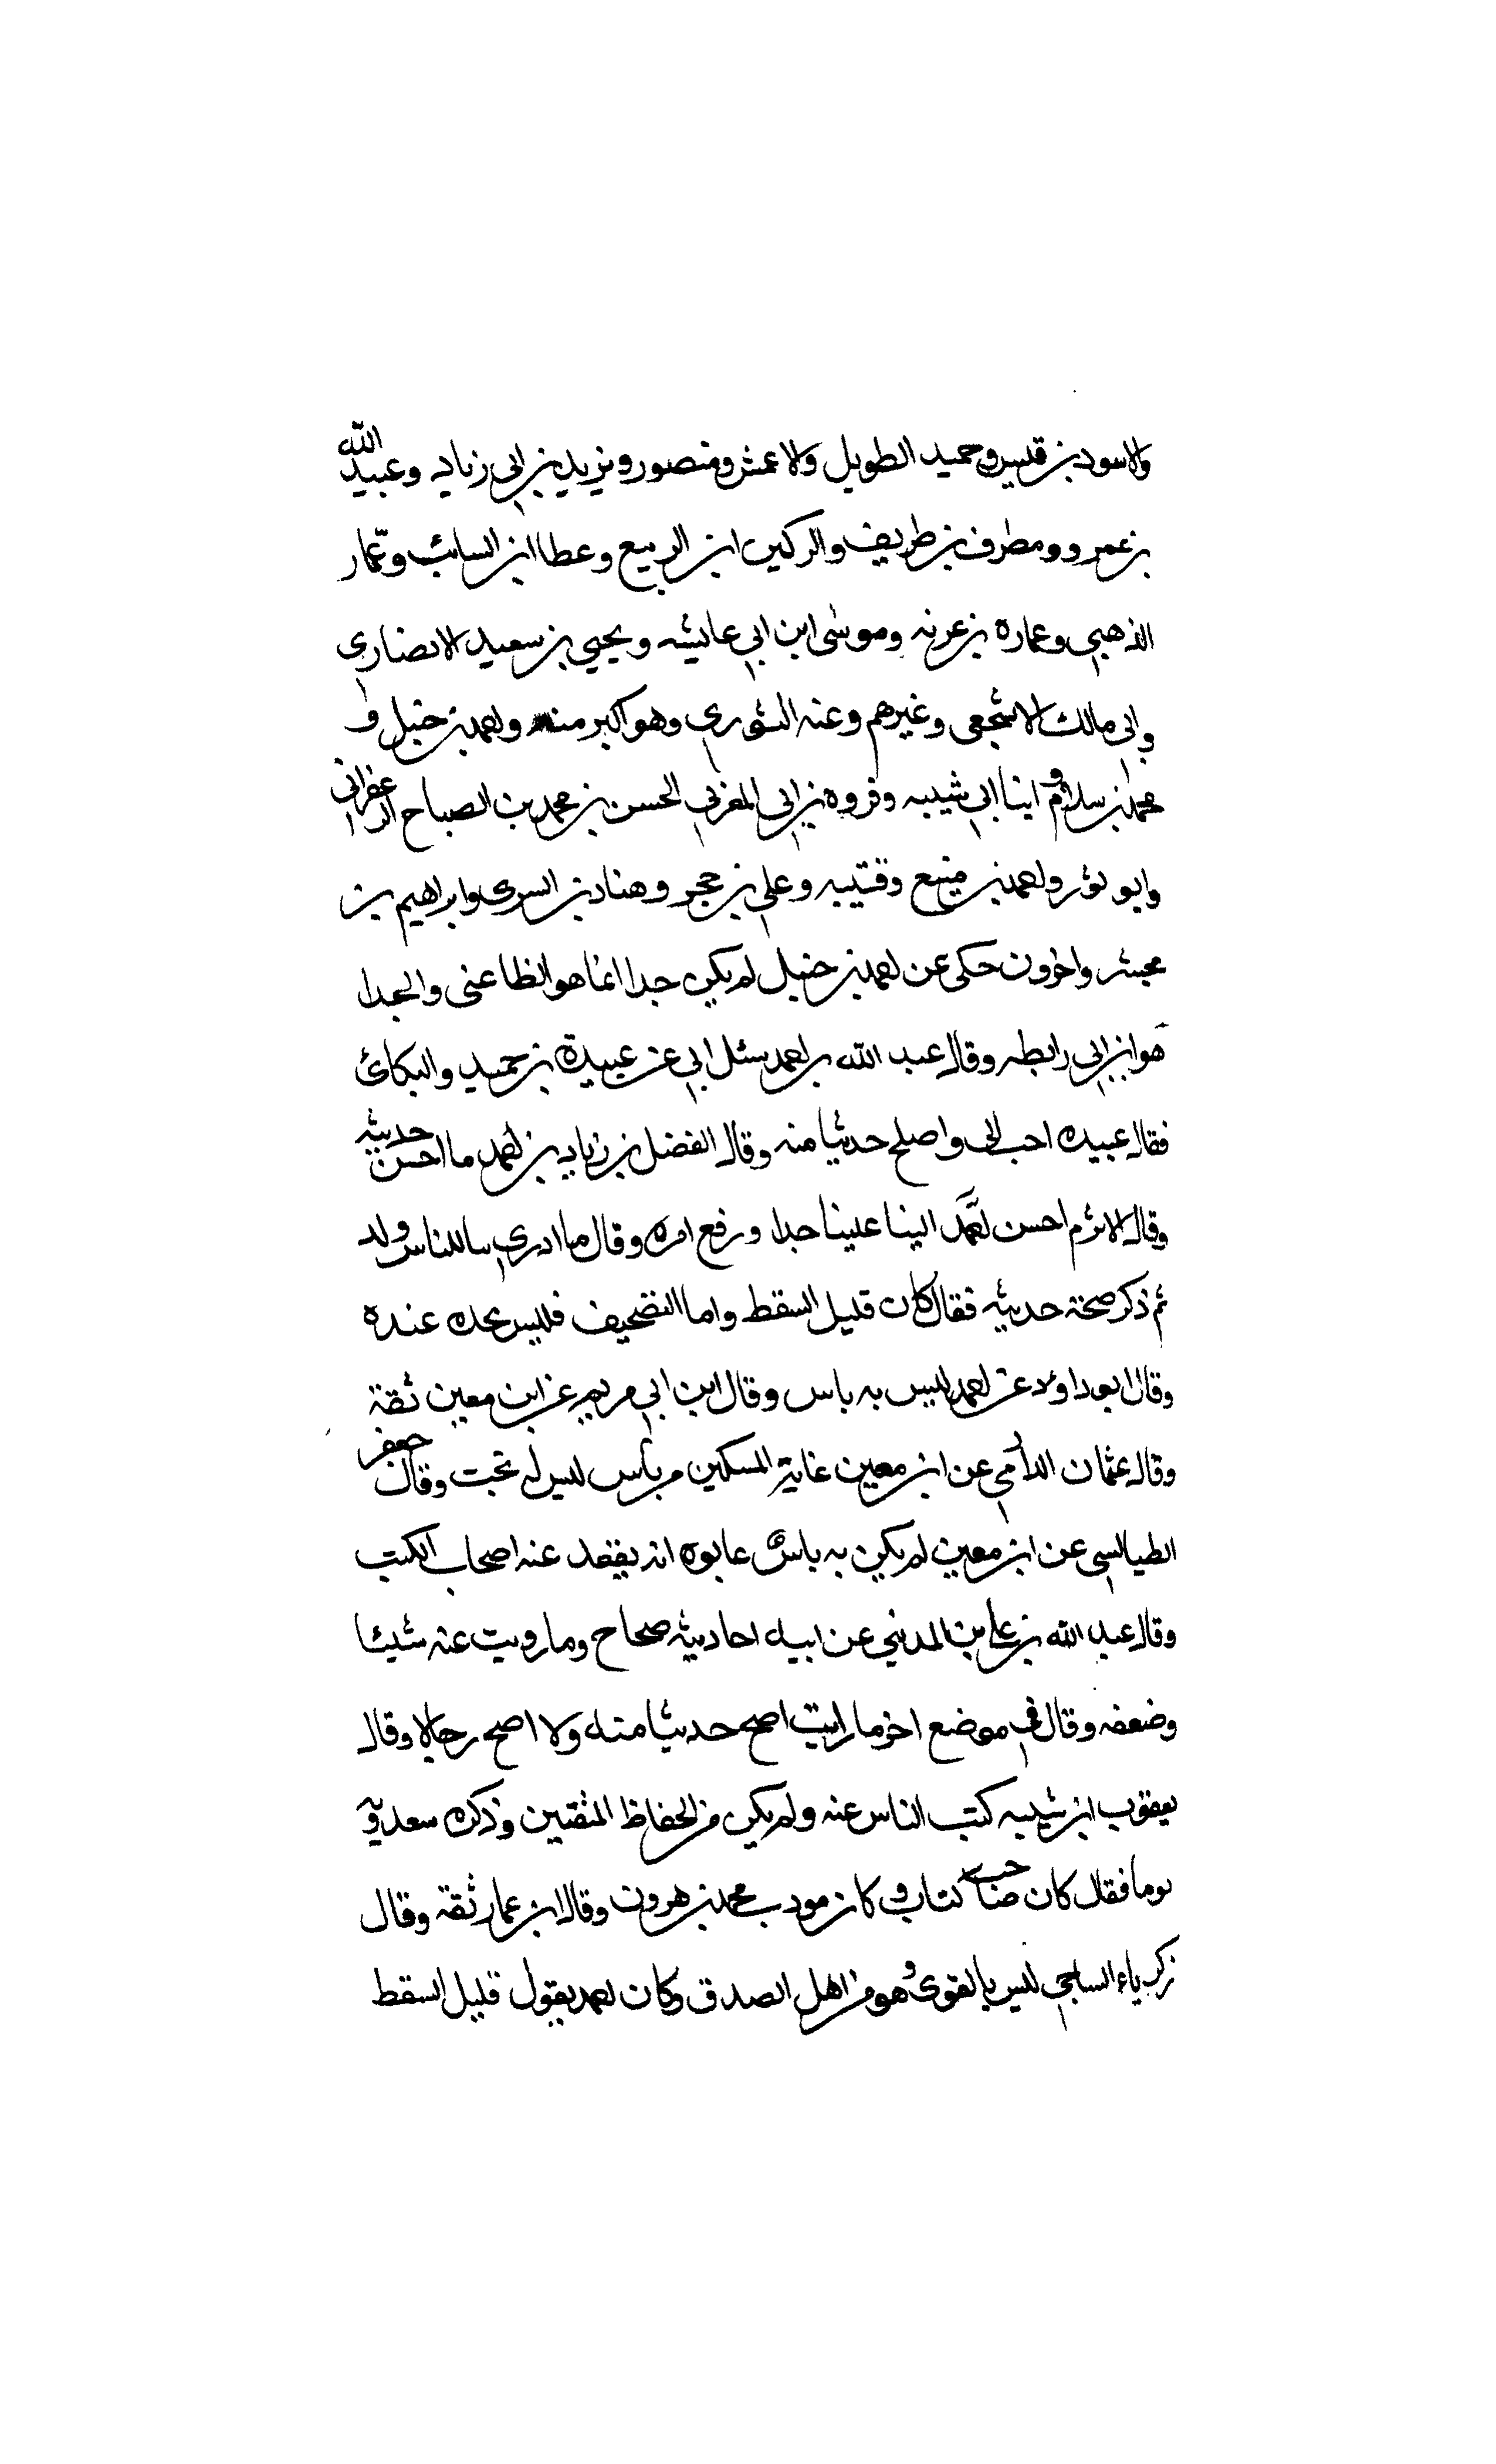 والاسود بن قيس وحميد الطويل والاعمش ومنصور ويزيد بن ابي زياد وعبيد الله
بن عمر وومطرف بن طريف والركين ابن الربيع وعطا ابن السائب وعمار
الذهبي وعماره بن عرنه وموسى ابن ابي عايشه ويحيى بن سعيد الانصاري
وابي مالك الاشجعي وغيرهم وعنه الثوري وهو اكبر منه واحمد بن حنبل و
محمد بن سلام و ابنا ابي شيبه وفروه بن ابي المغربي الحسن بن محمد بن الصباح الزعفراني
وابو ثور واحمد بن منيع وقتيبه وعلي بن حجر وهناد بن السري وابراهيم بن
مجشر واخرون حكى عن احمد بن حنبل لم يكن حدا انما هو الظاعني والحدا
هو ابن ابي رابطه وقال عبد الله بن احمد سئل ابي عن عبيدة بن حميد والبكائ
فقال عبيده احب الي واصلح حديثا منه وقال الفضل بن زياد بن احمد ما احسن حديثه
وقال الاثرم احسن احمد الينا علينا جدا ورفع امره وقال ما ادري ما للناس وله
ثم ذكر صحة حديثه فقال كان قليل السقط واما التصحيف فليس نجده عنده
وقال ابو داود عن احمد ليس به باس وقال ابن ابي مريم عن ابن معين ثقة
وقال عثمان الدارمي عن ابن معين عابة المسكين من باس ليس له بخت وقال جعفر
الطيالسي عن ابن معين لم يكن به باس عابوه انه يقعد عنه اصحاب الكتب
وقال عبد الله بن علي بن المديني عن ابيه احاديثه صحاح وما رويت عنه شيئا
وضعفه وقال في موضع اخر ما رايت اصح حديثا منه ولا اصح رجالا وقال
يعقوب ابن شيبه كتب الناس عنه ولم يكن من الحفاظ المتقنين وذكره سعدويه
يوما فقال كان صاحب كتاب وكان مودب محمد بن هرون وقال ابن عمار ثقة وقال
زكرياء الساجي ليس بالقوى وهو من اهل الصدق وكان احمد يقول قليل السقط